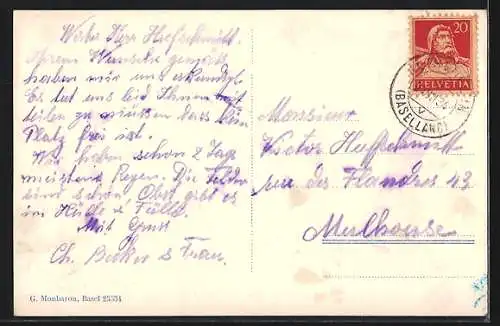 Werter Herr Hufschmitt.
Ihrem Wunsche gemäss
haben wir uns erkundigt.
Es tut uns leid Ihnen mit
teilen zu müssen dass kein
Platz frei ist.
Wir haben schon 2 Tage
meistens Regen. Die Felder
sind schön. Obst gibt es
in Hülle & Fülle.
Mit Gruss
Ch. Becker & Frau.
G. Monbaron, Basel 25334
20
HELVETIA
(BASELLAND)
Monsieur
Victor Hufschmitt
rue des Flandres 43
Mulhouse